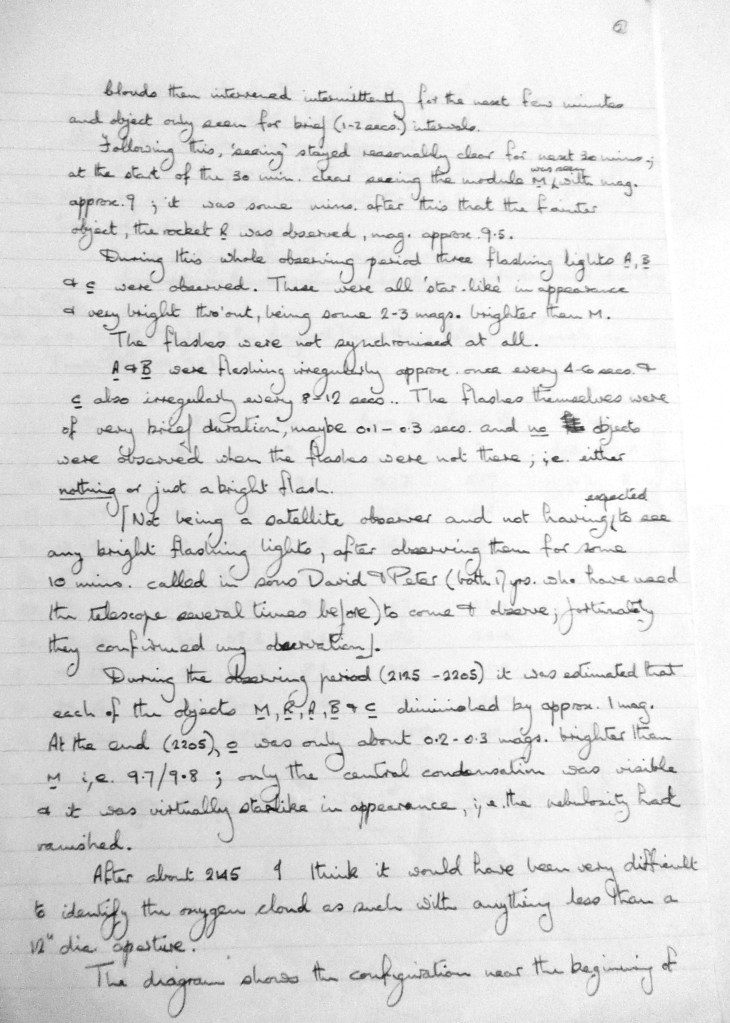 ②
Clouds then intervened intermittently for the next few minutes
and object only seen for brief (1-2 secs.) intervals.
Following this, 'seeing' stayed reasonably clear for next 30 mins.;
at the start of the 30 min. clear seeing the module M, was seen with mag.
approx. 9 ; it was some mins. after this that the fainter
object, the rocket R was observed, mag. approx. 9.5.
During this whole observing period three flashing lights A, B
& C were observed. These were all 'star-like' in appearance
& very bright thro'out, being some 2-3 mags. brighter than M.
The flashes were not synchronised at all.
A & B were flashing irregularly approx. once every 4-6 secs. &
C also irregularly every 8-12 secs.. The flashes themselves were
of very brief duration, maybe 0.1-0.3 secs. and no objects
were observed when the flashes were not there ; i.e. either
nothing or just a bright flash.
[Not being a satellite observer and not having expected to see
any bright flashing lights, after observing them for some
10 mins. called in sons David & Peter (both 17 yrs. who have used
the telescope several times before) to come & observe; fortunately
they confirmed my observation].
During the observing period (2125-2205) it was estimated that
each of the objects M, R, A, B & C diminished by approx. 1 mag.
At the end (2205), O was only about 0.2-0.3 mags. brighter than
M i.e. 9.7/9.8 ; only the central condensation was visible
& it was virtually starlike in appearance, i.e. the nebulosity had
vanished.
After about 2145 I think it would have been very difficult
to identify the oxygen cloud as such with anything less than a
12" dia. aperture.
The diagram shows the configuration near the beginning of